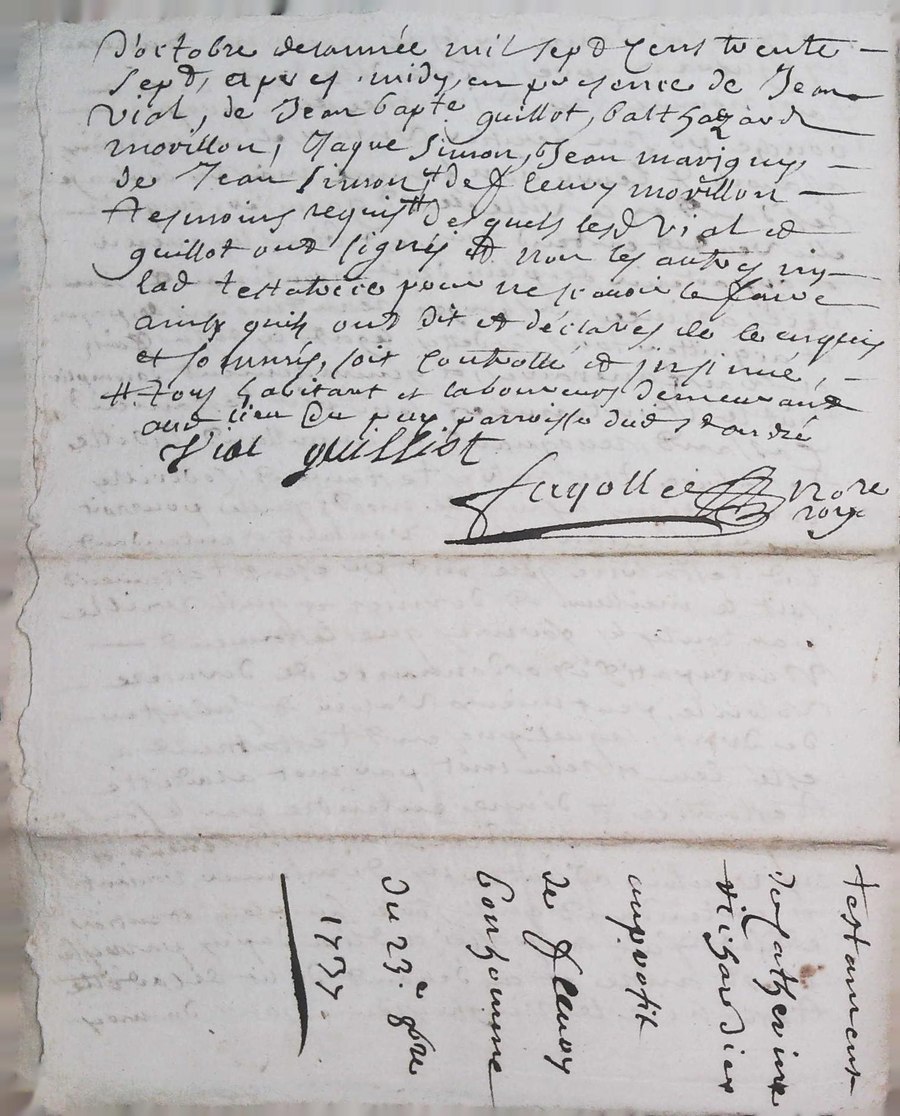 d'octobre de lannée mil sept cens trente
sept, apres midy, en presence de Jean
Vial, de Jean bapte guillot, balthazard
movillon, Jaque Simon, Jean marigny,
de Jean Simon, # de fleury movillon
tesmoins requis # desquels lesd Vial et
guillot ont signés et non les autres ny
lad testatrice pour ne scavoir le faire
ainsy quils ont dit et déclarés de ce enquis
et sommés, soit controllé et insinué,
#. tous habitant et laboureurs demeurant
aud lieu du puy parroisse dud st andré
Vial guilliot
fayolle Nore
royal
testament
de Catherine
richardier
au profit
de fleury
bonhomme
du 23.e 8bre
1737